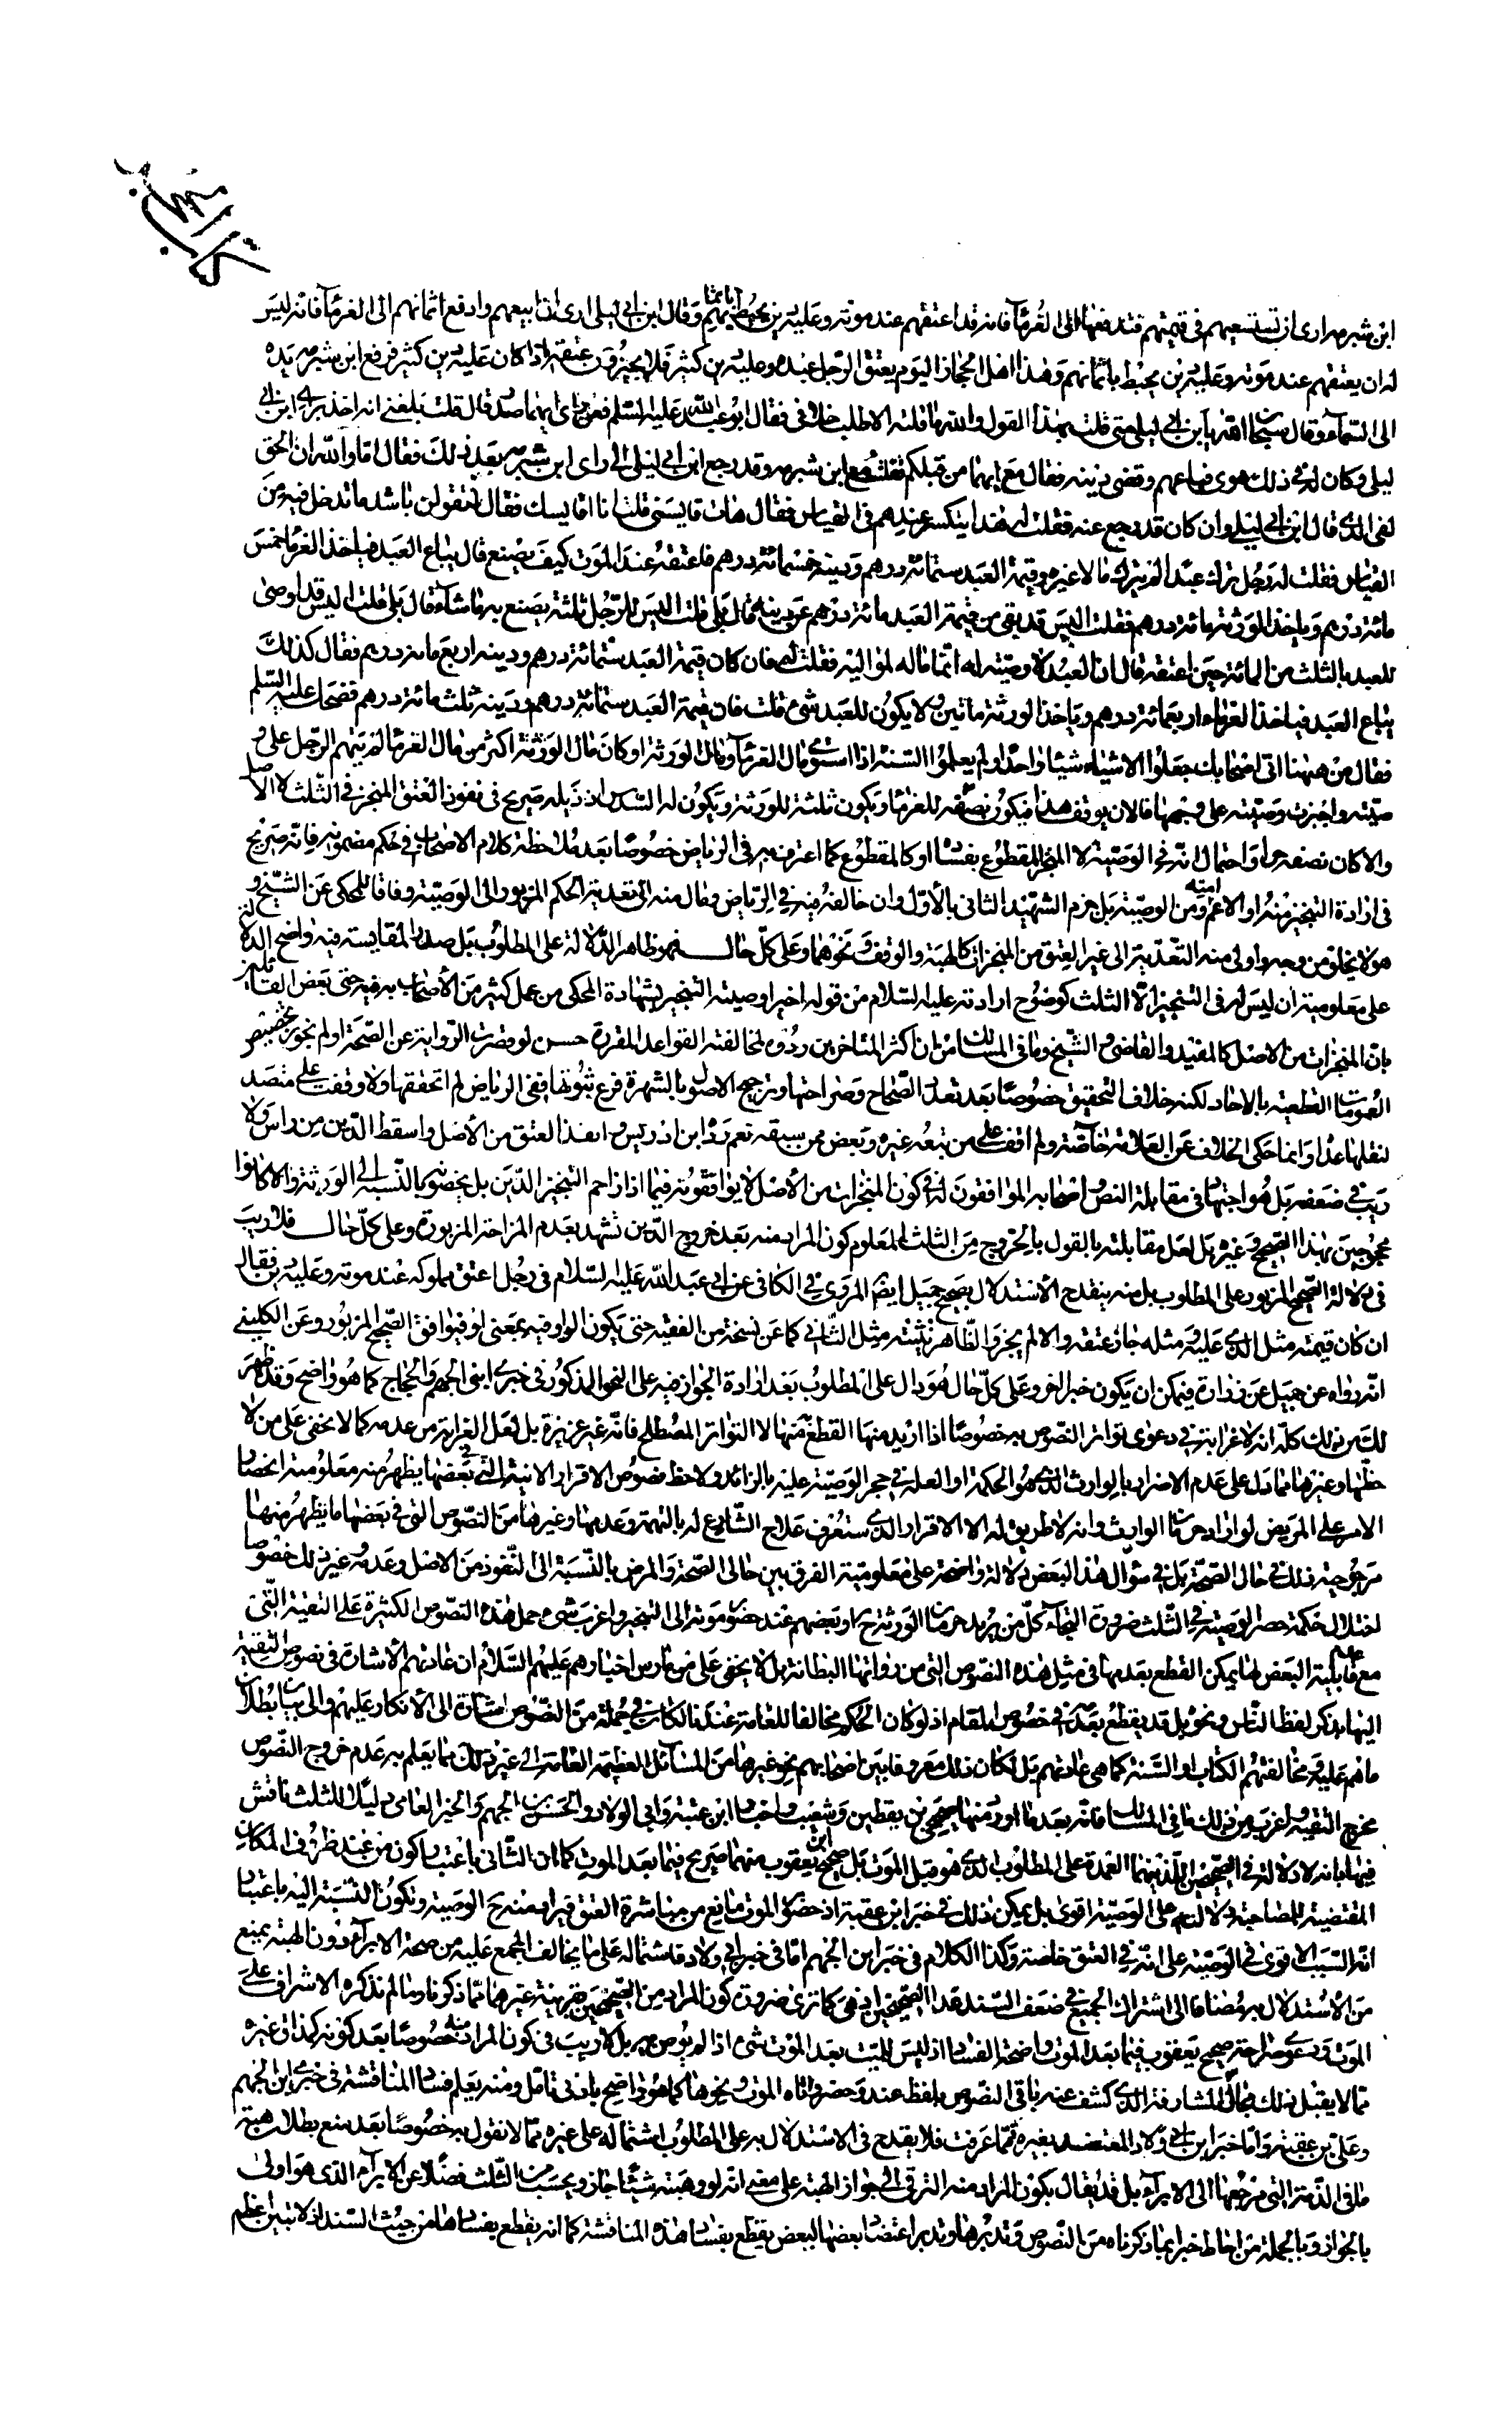 كتاب الحجر
ابن شبرمه ارى ان تستسعيهم في قيمتهم فتدفعها الى الغرمآء فانه قد اعتقهم عند موته وعليه دين يحيط بهم باثمانهم وقال ابن ابي ليلى ارى ان ابيعهم وادفع اثمانهم الى الغرمآء فانه ليس
له ان يعتقهم عند موته وعليه دين يحيط باثمانهم وهذا اهل الحجاز اليوم يعتق الرجل عبده وعليه دين كثير فلا يجيزون عتقه اذا كان عليه دين كثير فرفع ابن شبرمه يده
الى السمآء وقال سبحان الله يا بن ابي ليلى متى قلت بهذا القول والله ما قلته الا طلب خلافي فقال ابو عبد الله عليه السلم فعن راى ايهما صدر قال قلت بلغني انه اخذ براى ابن ابي
ليلى وكان له في ذلك هوى فباعهم وقضى دينه فقال مع ايهما من قبلكم فقلت مع ابن شبرمه وقد رجع ابن ابي ليلى الى راى ابن شبرمه بعد ذلك فقال اما والله ان الحق
لفي الذي قال ابن ابي ليلى وان كان قد رجع عنه فقلت له هذا ينكسر عندهم في القياس فقال هات قايسني قلت انا اقايسك فقال لتقولن باشد ما تدخل فيه من
القياس فقلت له رجل ترك عبدا لم يترك مالا غيره وقيمة العبد ستمائة درهم ودينه خمسمائة درهم فاعتقه عند الموت كيف يصنع قال يباع العبد فياخذ الغرماء خمس
مائة درهم وياخذ الورثة مائة درهم فقلت اليس قد بقى من قيمة العبد مائة درهم عن دينه قال بلى قلت اليس للرجل ثلثه يصنع به ما شآء قال بلى قلت اليس قد اوصى
للعبد بالثلث من المائة حين اعتقه قال ان العبد لا وصيته له انما ماله لمواليه فقلت له فان كان قيمة العبد ستمائة درهم ودينه اربع مائه درهم فقال كذلك
يباع العبد فياخذ الغرماء اربعمائة درهم وياخذ الورثة ماتين ولا يكون للعبد شئ قلت فان قيمة العبد ستمائة درهم ودينه ثلث مائة درهم فضحك عليه السلم
فقال من هيهنا اتى اصحابك جعلوا الاشياء شيئا واحدا ولم يعلموا السنه اذا استوى مال الغرمآء ومال الورثة او كان مال الورثة اكثر من مال الغرمآء لم يتهم الرجل على و
صيته واجيزت وصيته على وجهها فالان يوقف هذا فيكون نصفه للغرماء ويكون ثلثه للورثة ويكون له السدس اذ ذيله صريح في نفوذ العتق المنجز في الثلث لا الاصل
والا كان نصفه حرا واحتمال انه في الوصيته لا المنجز المقطوع بفساده او كالمقطوع كما اعترف به في الرياض خصوصا بعد ملاحظة كلام الاصحاب في حكم مضمونه فانه صريح
في ارادة التنجيز منه او الاعم منه ومن الوصيته بل جزم الشهيد الثاني بالأول وان خالفه فيه في الرياض وقال منه الى تعدية الحكم المزبور الى الوصيته وفاقا للمحكى عن الشيخ و
هو لا يخلو من وجه واولى منه التعدية الى غير العتق من المنجزات كالهبة والوقف ونحوهما وعلى كل حال فهو ظاهر الدلالة على المطلوب بل صدر المقايسته فيه واضح الدلالة
على معلومية ان ليس له في التنجيز الا الثلث كوضوح ارادته عليه السلام من قوله اخيرا وصيته التنجيز بشهادة المحكى من عمل كثير من الأصحاب به فيه حتى بعض القائلين
بان المنجزات من الاصل كالمفيد والقاضي والشيخ وما في المسالك من ان اكثر المتاخرين ردوه لمخالفته القواعد المقررة حسن لو قصرت الرواية عن الصحة او لم نجوز تخصيص
العمومات القطعية بالاحاد لكنه خلاف التحقيق خصوصا بعد تعدد الصحاح وصراحتها وترجيح الاصول بالشهرة فرع ثبوتها ففي الرياض لم اتحققها ولا وقفت على متصد
لنقلها عدا وانما حكى الخلاف عن العلامة خاصة ولم اقف على من تبعه غيره وبعض ممن سبقه نعم رده ابن ادريس وانفذ العتق من الأصل واسقط الدين من راس ولا
ريب في ضعفه بل هو اجتهاد في مقابلة النص واصحابه الموافقون له في كون المنجزات من الأصل لا يوافقونه فيما اذا زاحم التنجيز الدين بل يخصونه بالنسبه الى الورثة والا كانوا
محجوجين بهذا الصحيح وغيره بل لعل مقابلته بالقول بالخروج من الثلث المعلوم كون المراد منه بعد خروج الدين تشهد بعدم المزاحمة المزبورة وعلى كل حال فلا ريب
في دلالة الصحيح المزبور على المطلوب بل منه ينقدح الاستدلال بصحيح جميل ايضا المروى في الكافي عن ابي عبد الله عليه السلام في رجل اعتق مملوكه عند موته وعليه دين فقال
ان كان قيمته مثل الذي عليه ومثله جاز عتقه والا لم يجز والظاهر تثنيته مثل الثاني كما عن نسخة من الفقيه حتى يكون الواو فيه بمعنى او فيوافق الصحيح المزبور وعن الكليني
انه رواه عن جميل عن زرارة فيمكن ان يكون خبرا اخر وعلى كل حال هو دال على المطلوب بعد ارادة الجواز فيه على النحو المذكور في خبرى ابنى الجهم والحجاج كما هو واضح وقد ظهر
لك من ذلك كله انه لا غرابة في دعوى تواتر النصوص به خصوصا اذا اريد منها القطع منها لا التواتر المصطلح فانه غير عزيزة بل لعل الغرابة من عدمه كما لا يخفى على من لا
حظها وغيرها مما دل على عدم الاضرار بالوارث الذي هو الحكمة او العلة في حجر الوصيته عليه بالزائد ولاحظ نصوص الاقرار الاتية التي في بعضها يظهر منه معلومية انحصار
الامر على المريض لو اراد حرمان الوارث وانه لا طريق له الا الاقرار الذي ستعرف علاج الشارع له بالتهمة وعدمها وغيرها من النصوص التي في بعضها ما يظهر منها
مرجوحية ذلك في حال الصحة بل في سؤال هذا البعض دلالة واضحة على معلومية الفرق بين حالى الصحة والمرض بالنسبة الى النفوذ من الاصل وعدمه غير ذلك خصوصا
اختلال حكمة حصر الوصيته في الثلث ضرورة التجآء كل من يريد حرمان الورثة ح او بعضهم عند حضور موته الى التنجيز واغرب شئ حمل هذه النصوص الكثيرة على التقية التي
مع قابلية البعض لها يمكن القطع بعدمها في مثل هذه النصوص التي من رواتها البطانة بل لا يخفى على من مارس اخبارهم عليهم السلام ان عادتهم الاشارة في نصوص التقية
اليها بذكر لفظ الناس ونحو بل قد يقطع بعدمه في خصوص المقام اذ لو كان الحكم مخالفا للعامة عندنا لكان في جملة من النصوص اشارة الى الأنكار عليهم والى بيان بطلان
ما هم عليه ومخالفتهم الكتاب او السنة كما هي عادتهم بل لكان ذلك معروفا بين اصحابهم نحو غيرها من المسائل العظيمة العامة الى غير ذلك مما يعلم به عدم خروج النصوص
مخرج التقية واغرب من ذلك ما في المسالك فانه بعد ما اورد منها صحيحى بن يقطين وشعيب واخبار ابن عقبة وابي الولاد والحسن بن الجهم والخبر العامى دليلا للثلث ناقش
فيها بانه لا دلالة في الصحيحين اللذين هما العمدة على المطلوب الذي هو قبل الموت بل صحيح ابن يعقوب منهما صريح فيما بعد الموت كما ان الثاني باعتبار كون من عند ظرف المكان
المقتضية للمصاحبة دلالته على الوصية اقوى بل يمكن ذلك في خبر ابن عقبة اذ حضور الموت مانع من مباشرة العتق فيراد منه ح الوصية وتكون النسبة اليه باعتبار
انه السبب الاقوى في الوصية على انه في العتق خاصة وكذا الكلام في خبر ابن الجهم اما في خبر ابي ولاد فاشتماله على ما يخالف المجمع عليه من صحة الابرآء دون الهبة يمنع
من الأستدلال به مضافا الى اشتراك الجميع في ضعف السند عدا الصحيحين اذ هي كما ترى ضرورة كون المراد من الصحيحين بقرينة غيرهما مما ذكرناه وما لم نذكره الاشراف على
الموت ودعوى صراحة صحيح يعقوب فيما بعد الموت واضحة الفساد اذ ليس للميت بعد الموت شئ اذا لم يوص به بل لا ريب في كون المراد منه خصوصا بعد كونه كمذاق غيره
مما لا يقبل ذلك بحال المشارفة الذي كشف عنه باقي النصوص بلفظ عند وحضر واتاه الموت ونحوها كما هو واضح بادنى تامل ومنه يعلم فساد المناقشة في خبرى ابن الجهم
وعلى بن عقبة واما خبر ابن ابي ولاد المعتضد بغيره مما عرفت فلا يقدح في الاستدلال به على المطلوب اشتماله على غيره مما لا نقول به خصوصا بعد منع بطلان هبة
ما في الذمة التي مرجعها الى الابرآء بل قد يقال بكون المراد منه الترقى الى جواز الهبة على معنى انه لو وهبته شيئا جاز ويحسب من الثلث فضلا عن الابرآء الذي هو اولى
بالجواز وبالجملة من احاط خبرا بما ذكرناه من النصوص وتدبرها وتدبر اعتضاد بعضها لبعض يقطع بفساد هذه المناقشة كما انه يقطع بفسادها من حيث السند اذ لا تبين اعظم